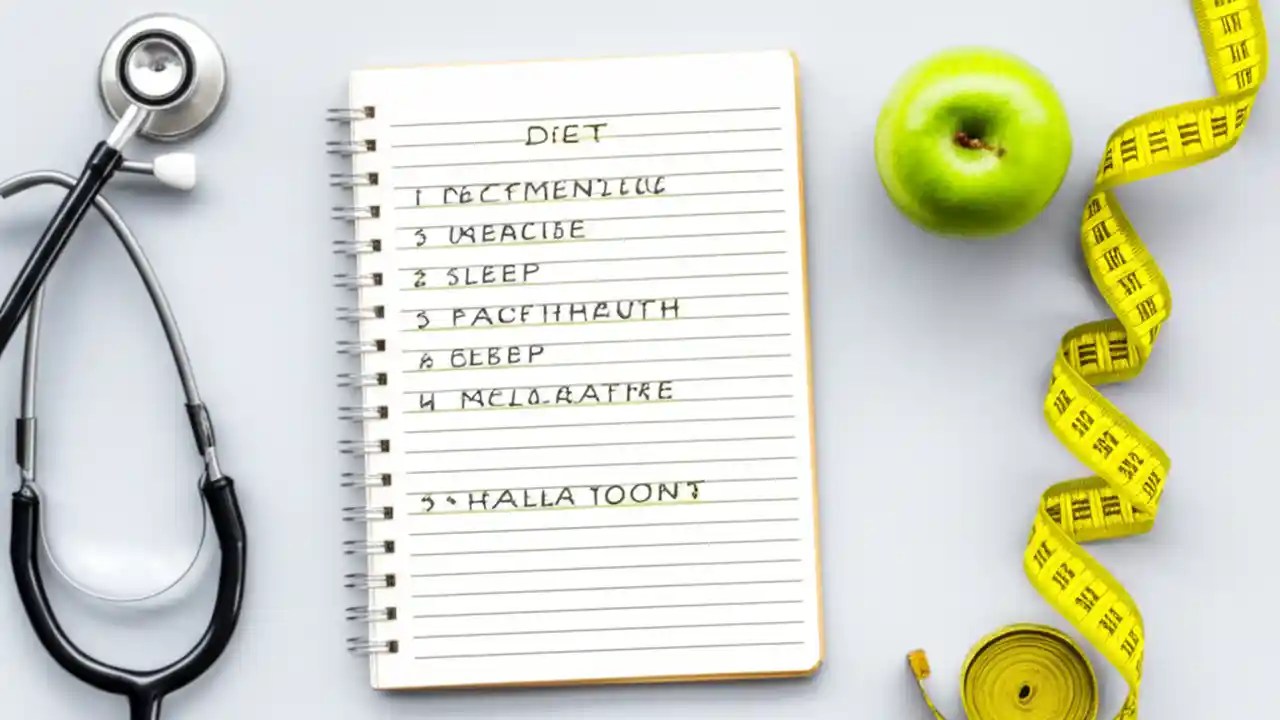 DIET
1 PECFMENZLIE
3 WEACISE
2 SLEEP
3 PACFTHRAUTH
SEEEP
4 MELO.EATFRE
3 • HALLA TOONT